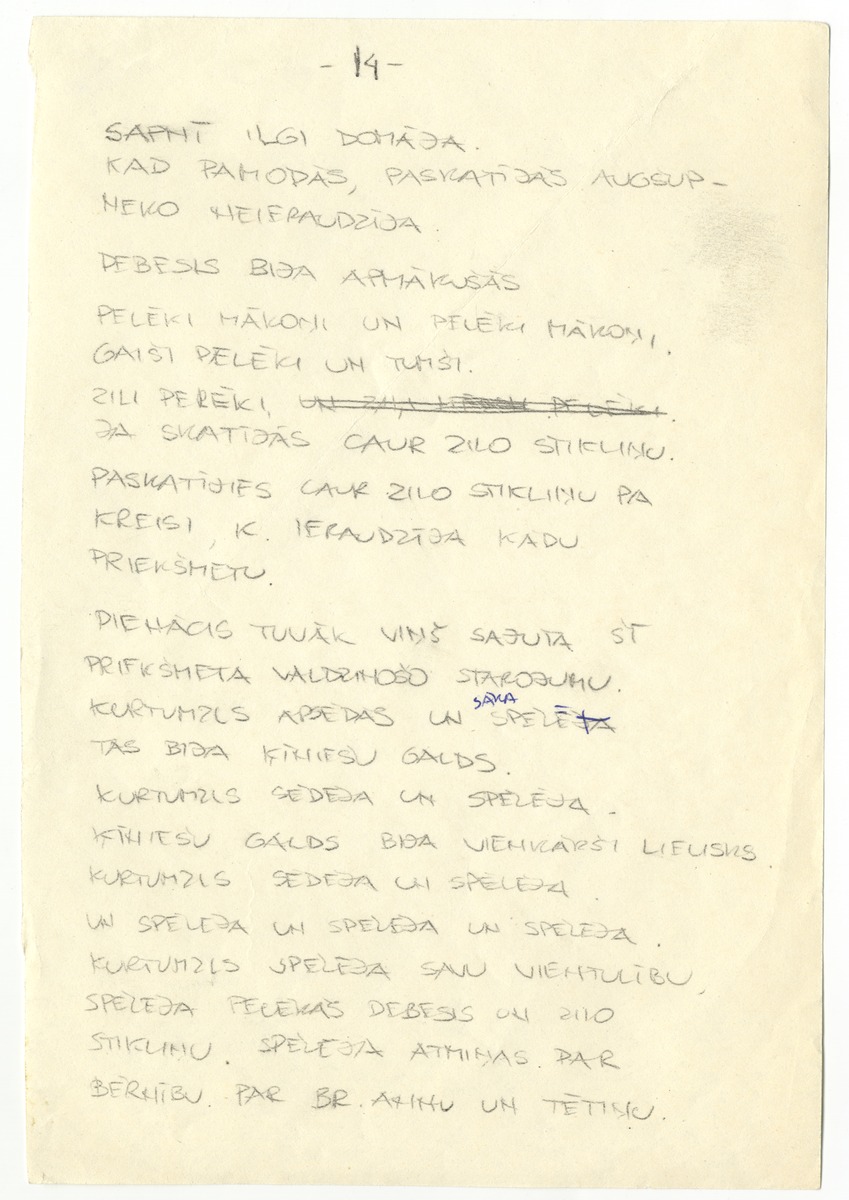 - 14 -
SAPNĪ ILGI DOMĀJA.
KAD PAMODĀS, PASKATĪJĀS AUGSUP -
NEKO NEIERAUDZĪJA.
DEBESIS BIJA APMĀKUŠĀS
PELĒKI MĀKOŅI UN PELĒKI MĀKOŅI,
GAIŠI PELĒKI UN TUMŠI.
ZILI PERĒKI, UN ZAĻI PELĒKI.
JA SKATĪJĀS CAUR ZILO STIKLIŅU.
PASKATĪJIES CAUR ZILO STIKLIŅU PA
KREISI, K. IERAUDZĪJA KĀDU
PRIEKŠMETU.
PIENĀCIS TUVĀK VIŅŠ SAJUTA ŠĪ
PRIEKŠMETA VALDZINOŠO STAROJUMU.
KURTUMZLS APSĒDĀS UN SĀKA SPĒLĒJA
TAS BIJA ĶĪNIEŠU GALDS.
KURTUMZLS SĒDĒJA UN SPĒLĒJA.
ĶĪNIEŠU GALDS BIJA VIENKĀRŠI LIELISKS.
KURTUMZLS SĒDĒJA UN SPĒLĒJA
UN SPĒLĒJA UN SPĒLĒJA UN SPĒLĒJA.
KURTUMZLS SPĒLĒJA SAVU VIENTULĪBU,
SPĒLĒJA PELĒKĀS DEBESIS UN ZILO
STIKLIŅU. SPĒLĒJA ATMIŅAS PAR
BĒRNĪBU. PAR BR. ANIŅU UN TĒTIŅU.